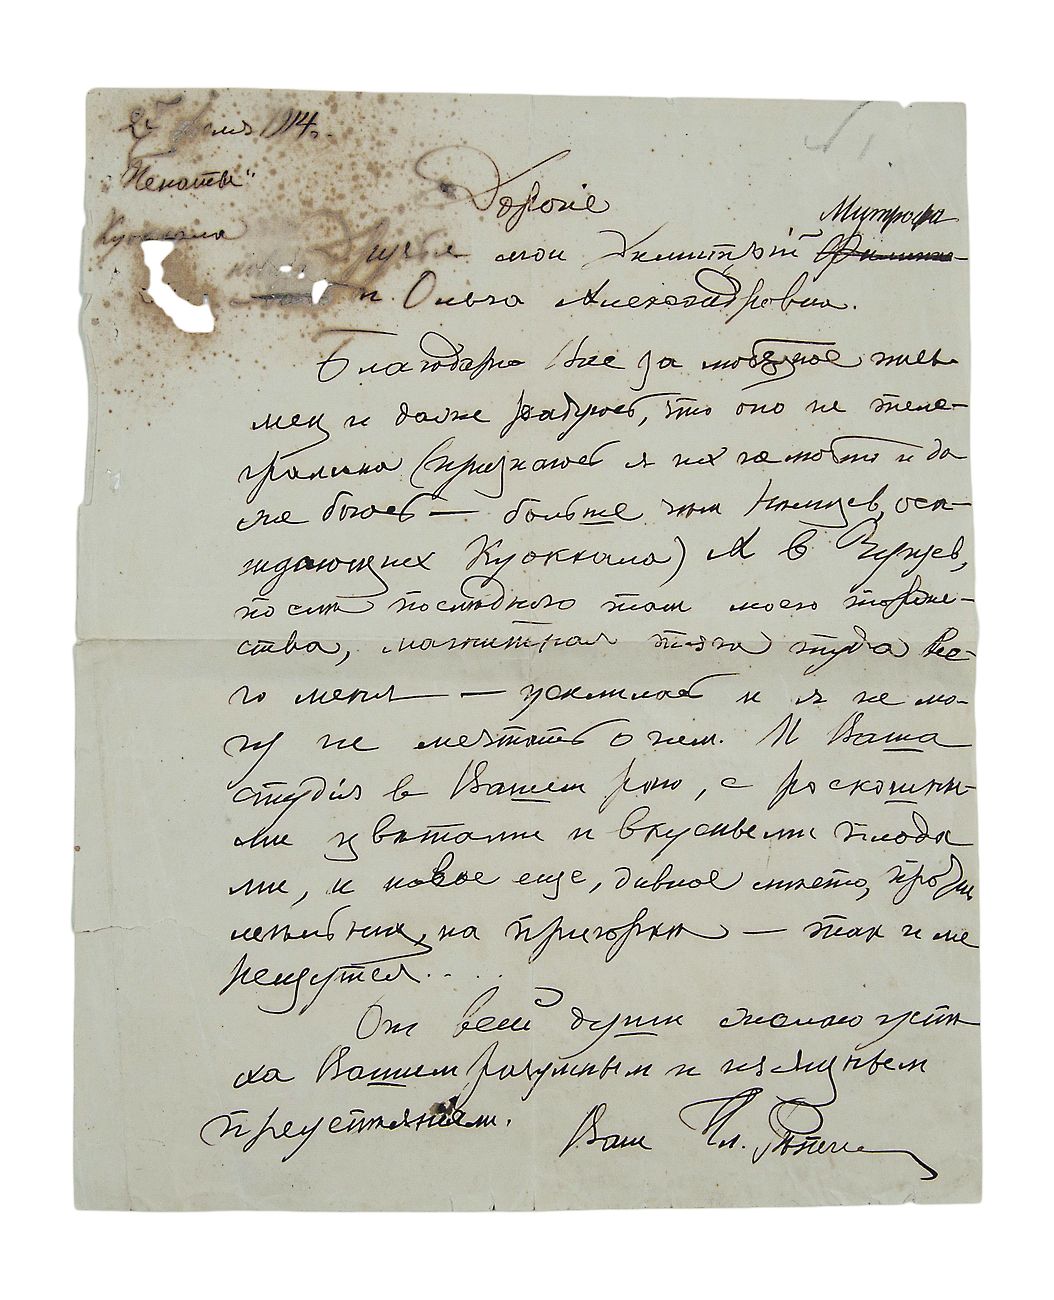 27 1914 г.
"Пенаты"
Куоккала
Дорогіе
Митрофа
Друзья мои Дмитрій
нович и Ольга Александровна.
Благодарю Вас за любезное пись
мецо и даже радуюсь, что оно не теле-
грамма (признаюсь я их не люблю и да
же боюсь — больше чем Немцев, оса-
ждающих Куоккала) А в Чугуев,
после последняго там моего торже-
ства, магнитная тяга туда все-
го меня — усилилась и я не мо-
гу не мечтать о нем. И Ваша
студія в Вашем раю, с роскошны-
ми цветами и вкусными плода
ми, и новое еще, дивное место,
на пригорке — так и ме
рещутся....
От всей души желаю успе
ха Вашим разумным и изящным
предпріятіям.
Ваш Ил. Репин